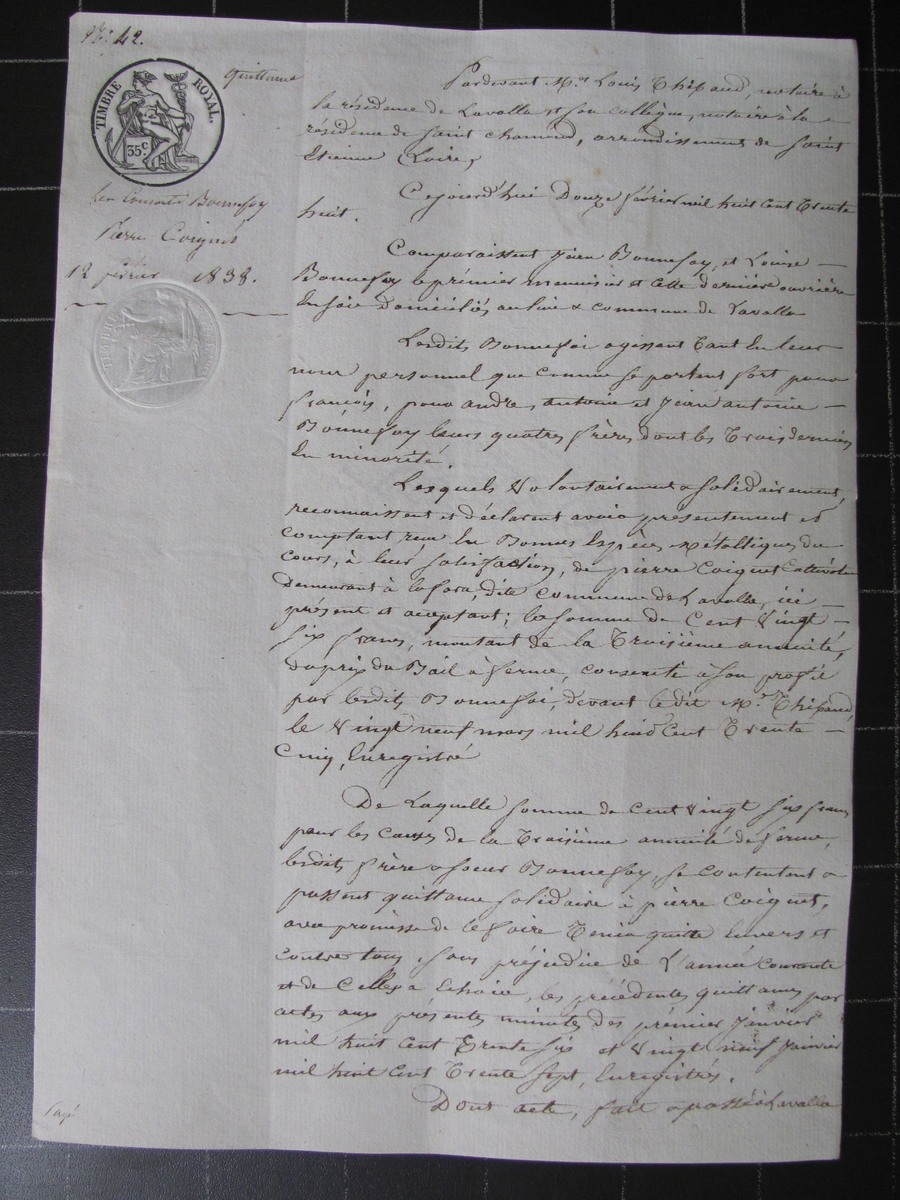 N° 42.
TIMBRE ROYAL.
35 c
quittance
les Consorts Bonnefoy
Pierre Coignet
12 février 1838.
Pardevant Me Louis Thibaud, notaire à
la résidence de Lavalla et son collègue, notaire à la
résidence de Saint Chamond, arrondissement de Saint
Etienne (Loire,
Cejourd'hui Douze février mil huit Cent Trente
huit.
Comparaissent Jean Bonnefoy, et Louise
Bonnefoy le prémier menuisier et cette dernière ouvrière
En soie domiciliés au lieu & commune de Lavalla
Lesdits Bonnefoi agissant tant En leur
nom personnel que comme se portant fort pour
françois, pour andré, antoine et Jean antoine
Bonnefoy leurs quatres frères dont les Trois derniers
En minorité.
Lesquels Volontairement & solidairement,
reconnaissent et déclarent avoir présentement et
comptant reçu En Bonnes Espèces métalliques du
Cours, à leur satisfaction, de pierre Coignet Cultivateur
Demeurant à , dite Commune de Lavalla, ici
présent et acceptant; la somme de Cent Vingt
six francs, montant de la Troisième annuité,
Du prix du Bail à ferme, consenti à son profit
par lesdits Bonnefoi, devant le dit Me Thibaud
le Vingt neuf mars mil huit Cent Trente
Cinq, Enregistré
De Laquelle somme de Cent Vingt six francs
pour les causes de la Troisième annuité de ferme,
lesdits frère & soeur Bonnefoy, se contentent &
passent quittance solidaire à pierre Coignet,
avec promesse de le faire Tenir quitte Envers et
contre tous, sans préjudice de L'année Courante
et de Celles à Echoir, les précédentes quittances par
actes aux présentes minutes des prémier Janvier
mil huit Cent Trente six et Vingt neuf Janvier
mil huit Cent Trente sept, Enregistrés.
Dont acte, fait & passé à Lavalla